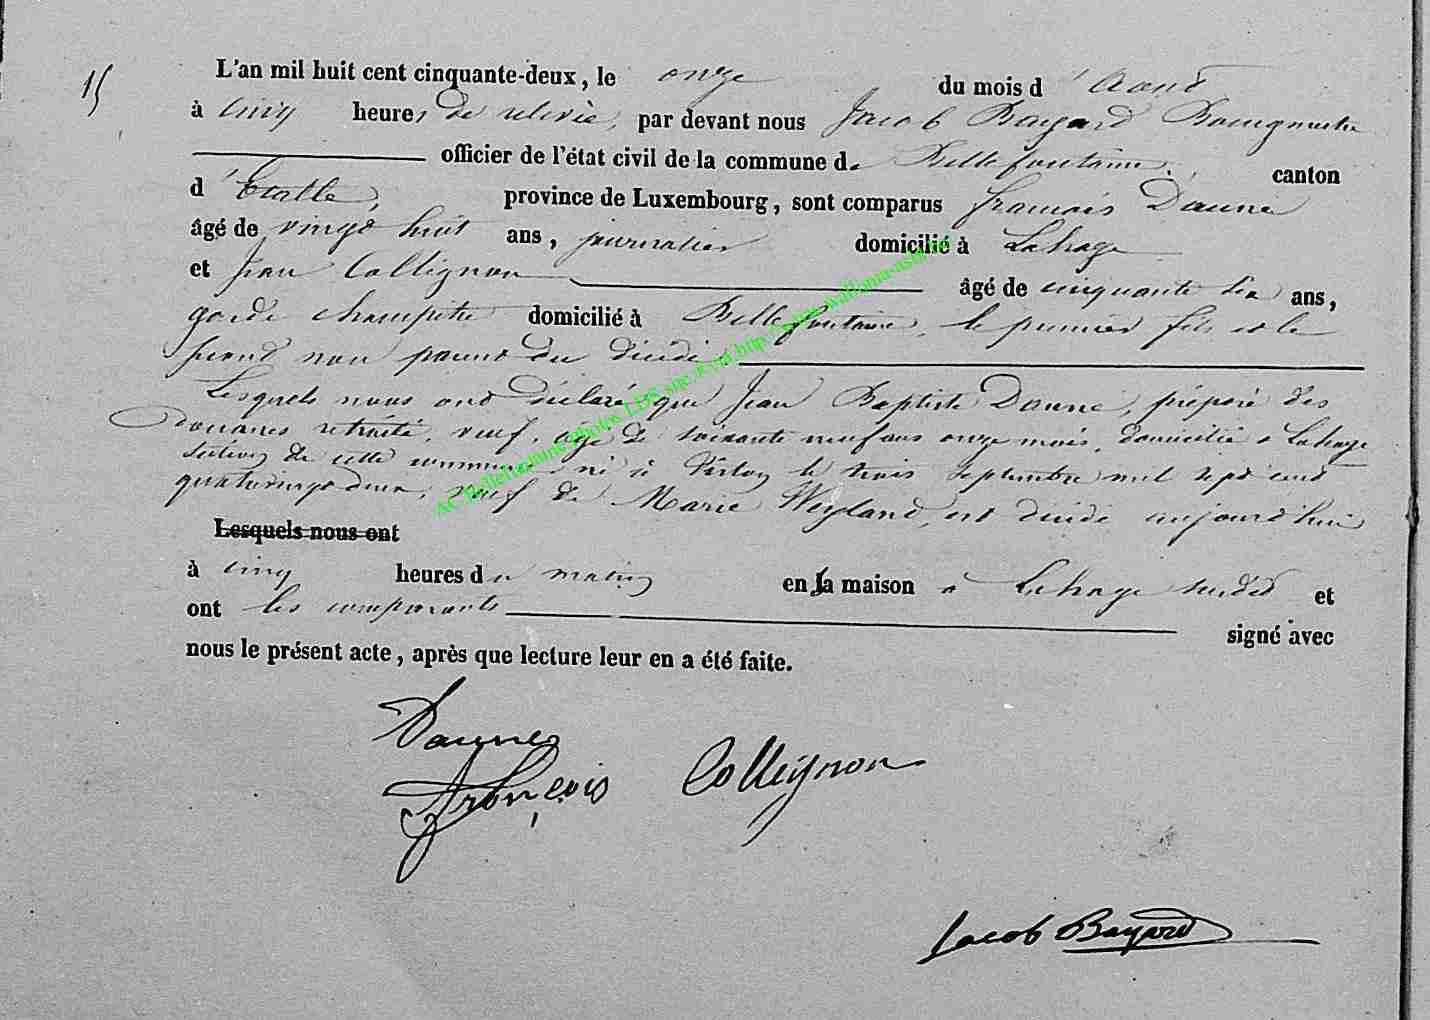 15
L'an mil huit cent cinquante-deux, le onze du mois d'Aout
à cinq heures de relevée, par devant nous Jacob Bayard Bourgmestre
officier de l'état civil de la commune de Bellefontaine, canton
d'Etalle, province de Luxembourg, sont comparus françois Daune
âgé de vingt huit ans, journalier domicilié à Lahage
et Jean Collignon âgé de cinquante six ans,
garde champetre domicilié à Bellefontaine, le premier fils et le
second non parent du décédé
Lesquels nous ont déclaré que Jean Baptiste Daune, préposé des
douanes retraité, veuf, age de soixante neuf ans onze mois, domicilié à Lahage
section de cette commune né à Virton le trois Septembre mil sept cent
quatrevingt deux, veuf de Marie Weyland, est décédé aujourd'hui
Lesquels nous ont
à cinq heures du matin en la maison à Lahage susdit et
ont les comparants signé avec
nous le présent acte, après que lecture leur en a été faite.
Daune
François Collignon
Jacob Bayard